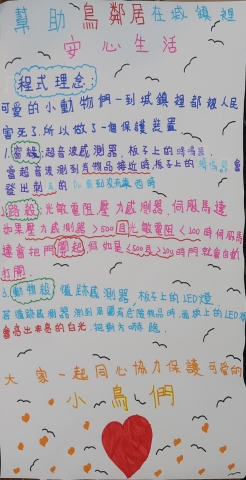 幫助鳥鄰居在城鎮裡
安心生活
程式理念:
可愛的小動物們一到城鎮裡都被人民
害死了.所以做了一個保護裝置
1.窗殺:超音波感測器.板子上的蜂鳴器.
當超音波測到有物品接近時.板子上的蜂鳴器會
發出刺
2.路殺:光敏電阻.壓力感測器.伺服馬達
如果壓力感測器>500且光敏電阻<100時伺服馬
達會把門關起.但如是<500且>30時門就會自動
打開.
3.動物殺:循跡感測器.板子上的LED燈.
若循跡感測器測到周圍有危險物品時.板塊上的LED燈
會亮出來各的白光.提醒方
大家一起同心協力保護可愛的
小鳥們